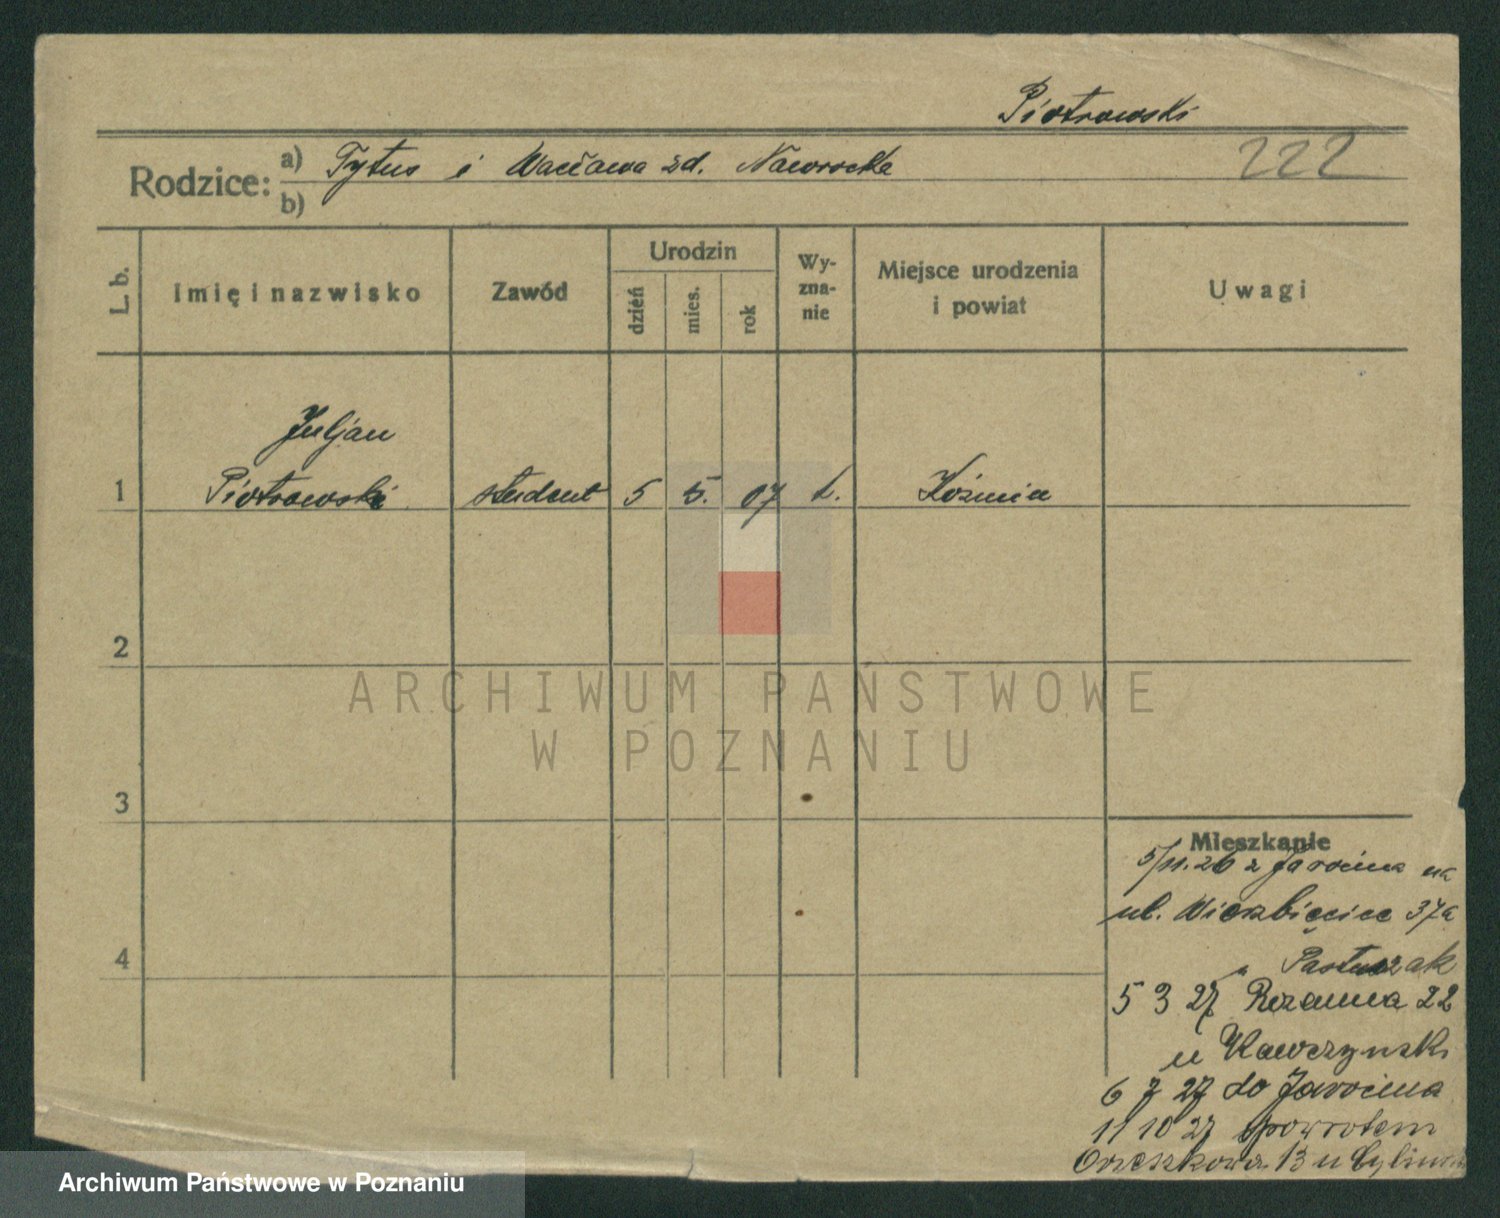 Piotrowski
222
Rodzice: a) Tytus i Wacława zd. Nawrocka
b)
L. b.
Imię i nazwisko
Zawód
Urodzin
dzień
mies.
rok
Wy-
zna-
nie
Miejsce urodzenia
i powiat
Uwagi
Juljan
1 Piotrowski student 5 5. 07 k. Koźmin
2
3
4
ARCHIWUM PAŃSTWOWE
W POZNANIU
Mieszkanie
5/11.26 z Jarocina na
ul. Wierzbięcice 37a
" Pastuszak
5 3 27 Różanna 22
u Kawczynski
6 7 27 do Jarocina
11 10 27 spowrotem
Orzeszkowa 13 u
Archiwum Państwowe w Poznaniu